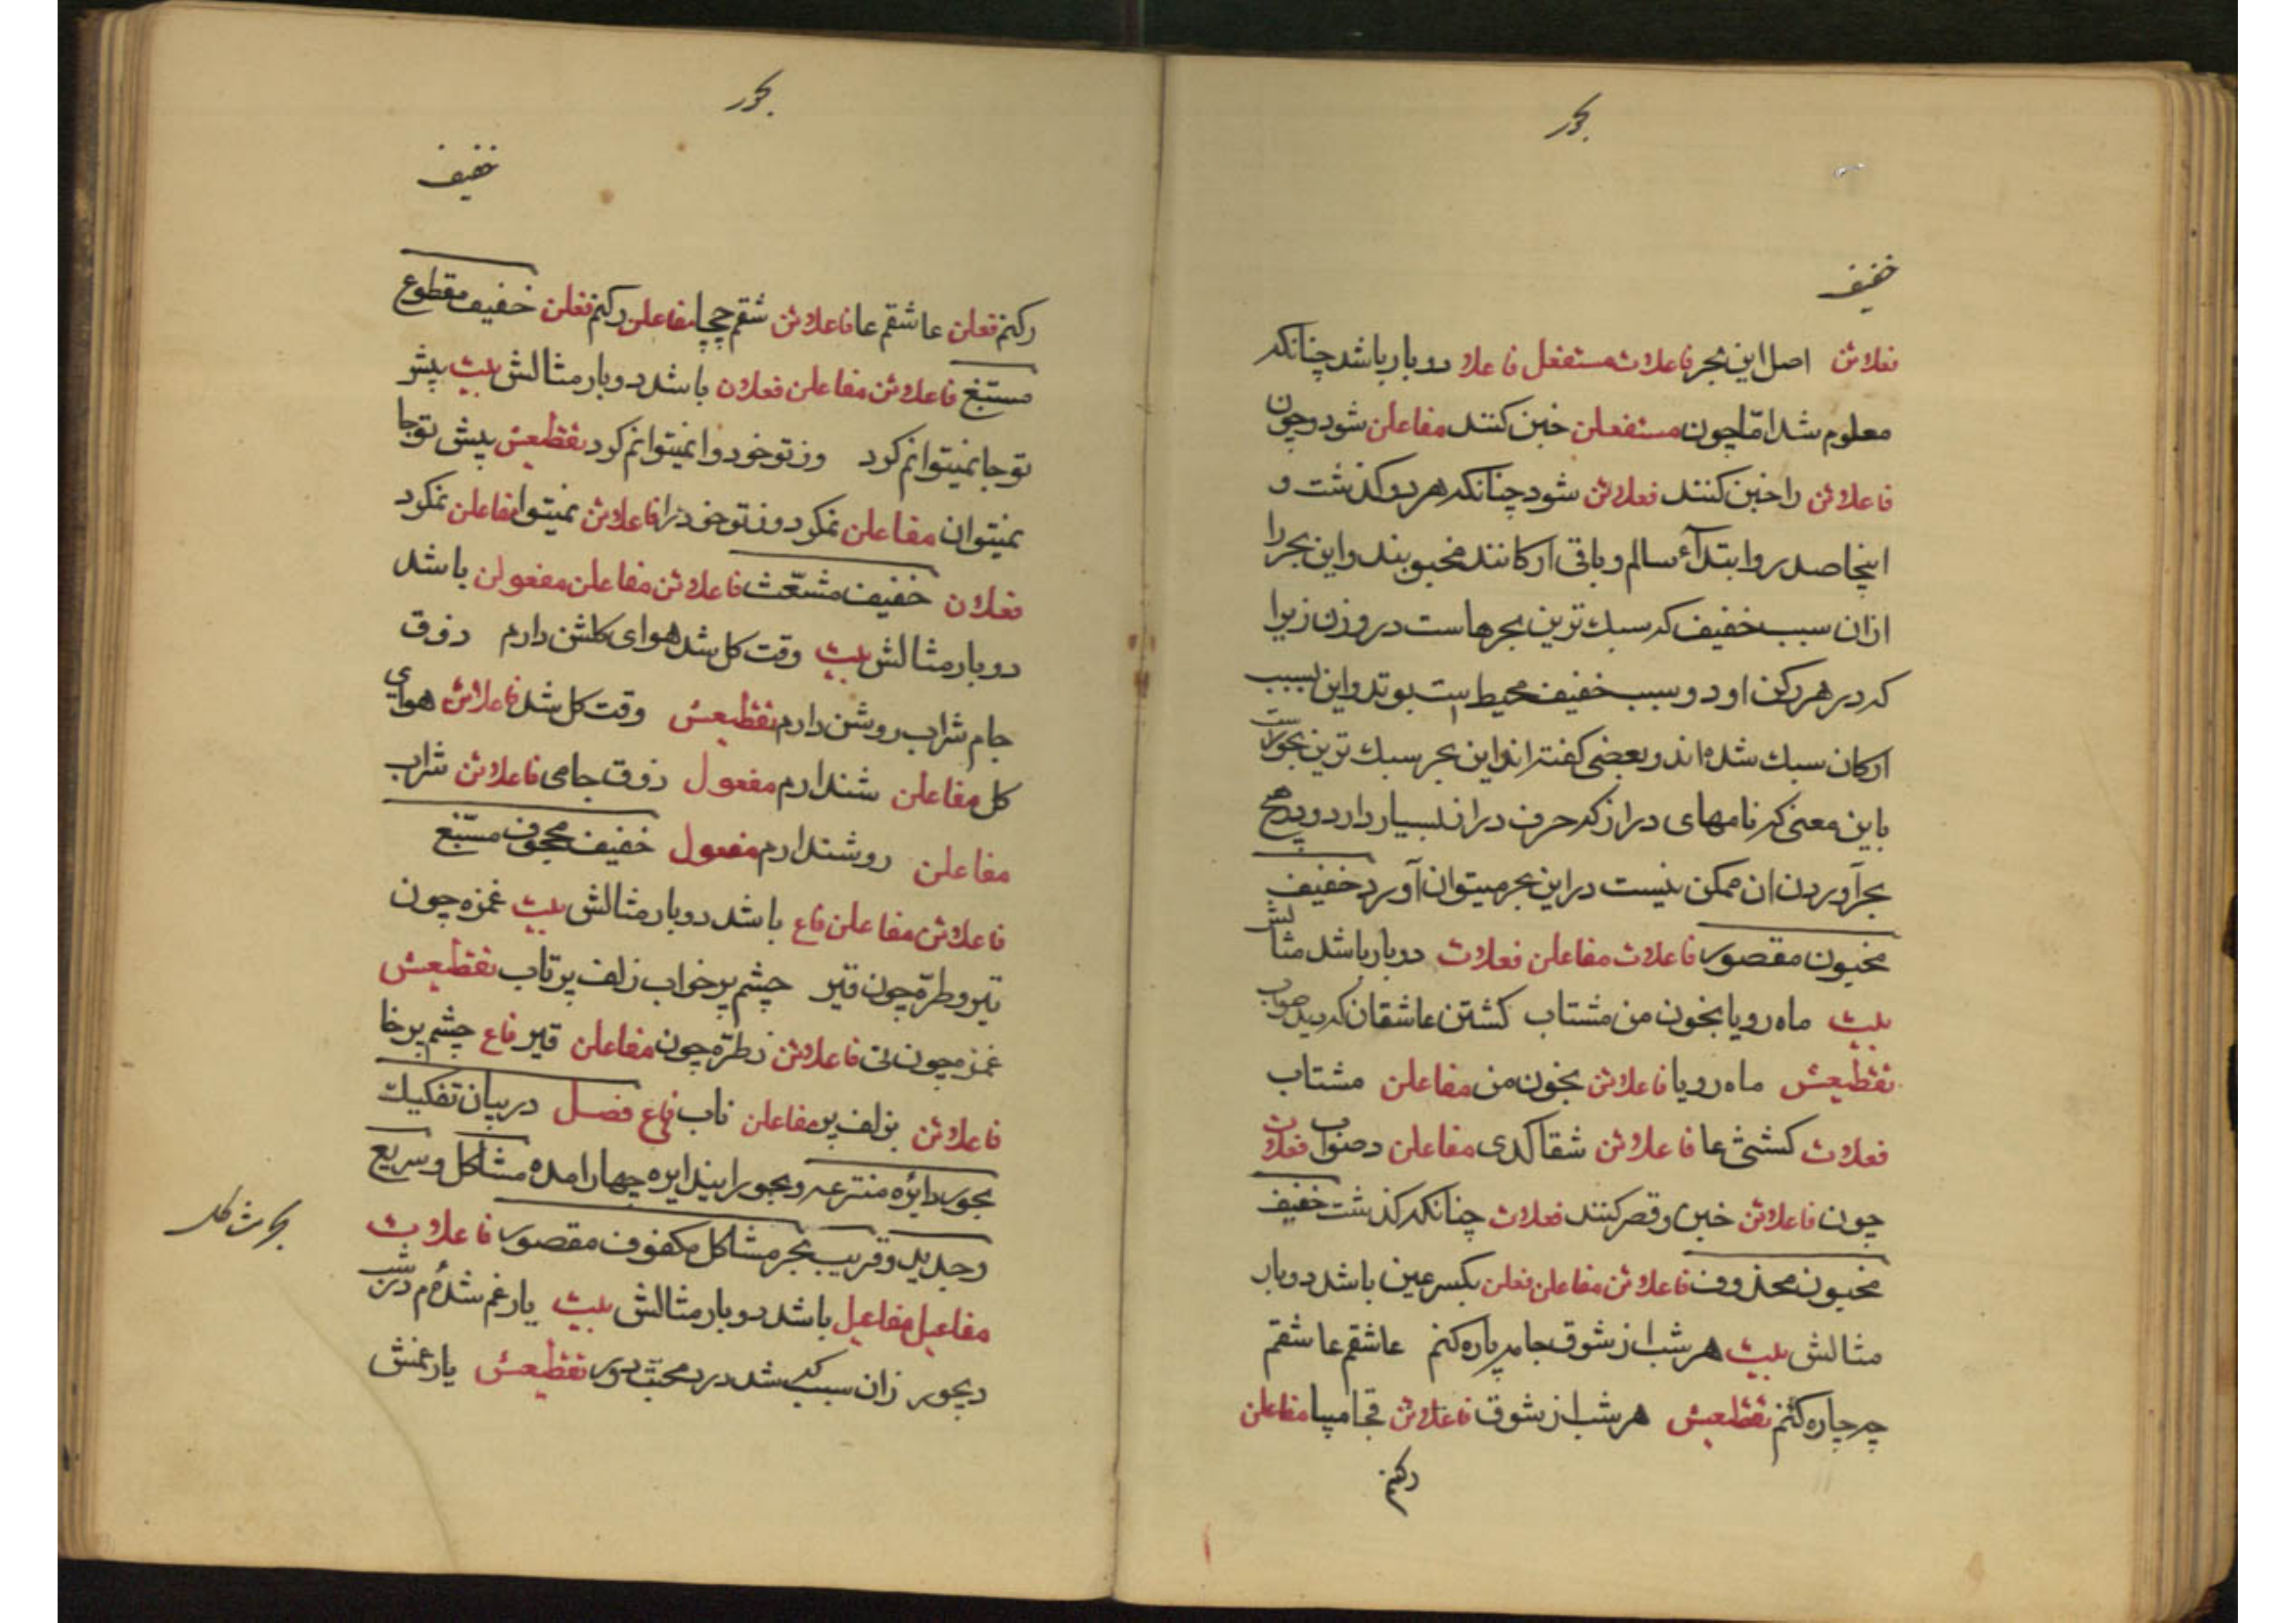 بحور
خفیف
فعلاتن اصل این بحر فاعلات مستفعل فاعلا دو بار باشد چنانکه
معلوم شد امّا چون مستفعلن خبن کنند مفاعلن شود و چون
فاعلاتن را خبن کنند فعلاتن شود چنانکه هر دو کذشت و
اینجا صدر و ابتدآء سالم و باقی ارکانند مخبوبند و این بحر را
ازان سبب خفیف که سبك ترین بحرهاست در وزن زیرا
که در هر رکن او دو سبب خفیف محیط است بوتد و این بسبب
ارکان سبك شده اند و بعضی کفته اند این بحر سبك ترین بحورست
باین معنی که نامهای دراز که حرف دران بسیار دارد و در هیچ
بحر آوردن ان ممکن نیست در این بحر میتوان آورد خفیف
مخبون مقصور فاعلات مفاعلن فعلات دو بار باشد مثالش
بیت ماه رویا بخون من مشتاب کشتن عاشقان که دید صواب
تقطیعش ماه رویا فاعلاتن بخون من مفاعلن مشتاب
فعلات کشتنی عا فاعلاتن شقا کدی مفاعلن دصواب فعلات
چون فاعلاتن خبن و قصر کنند فعلات چنانکه کذشت خفیف
مخبون محذوف فاعلاتن مفاعلن فعلن بکسر عین باشد دوبار
مثالش بیت هر شب از شوق جامه پاره کنم عاشقم عاشقم
چه چاره کنم تقطیعش هر شب از شوق فاعلاتن قجامپا مفاعلن
رکنم
بحور
خفیف
رکنم فعلن عاشقم عا فاعلاتن شقم چچا مفاعلن رکنم فعلن خفیف مقطوع
مستبغ فاعلاتن مفاعلن فعلان باشد دو بار مثالش بیت پیش
تو جا نمیتوانم کرد وز تو خود وا نمیتوانم کرد تقطیعش پیش تو جا
نمیتوان مفاعلن نمکرد وز تو خود را فاعلاتن نمیتوا مفاعلن نمکرد
فعلان خفیف مشعّث فاعلاتن مفاعلن مفعولن باشد
دو بار مثالش بیت وقت کل شد هوای کلشن دارم ذوق
جام شراب روشن دارم تقطیعش وقت کل شد فاعلاتن هوای
کل مفاعلن شندارم مفعول ذوق جامی فاعلاتن شراب
مفاعلن روشندارم مفعول خفیف مجحوف مسّبغ
فاعلاتن مفاعلن فاع باشد دو بار مثالش بیت غمزه چون
تیر و طرّه چون قیر چشم پر خواب زلف پر تاب تقطیعش
غمزه چون تی فاعلاتن رطرّه چون مفاعلن قیر فاع چشم پر خا
فاعلاتن بزلف پر مفاعلن تاب فاع فصل در بیان تفکیك
بحور دایره منتزعه و بحور ازیندایره چهار امده مشاکل و سریع
و جدید و قریب بحر مشاکل مکفوف مقصور فاعلات
مفاعیل مفاعیل باشد دو بار مثالش بیت یار غم شده‌ام در شب
دیجور زان سبب که شد درد محبت دور تقطیعش یار غمش